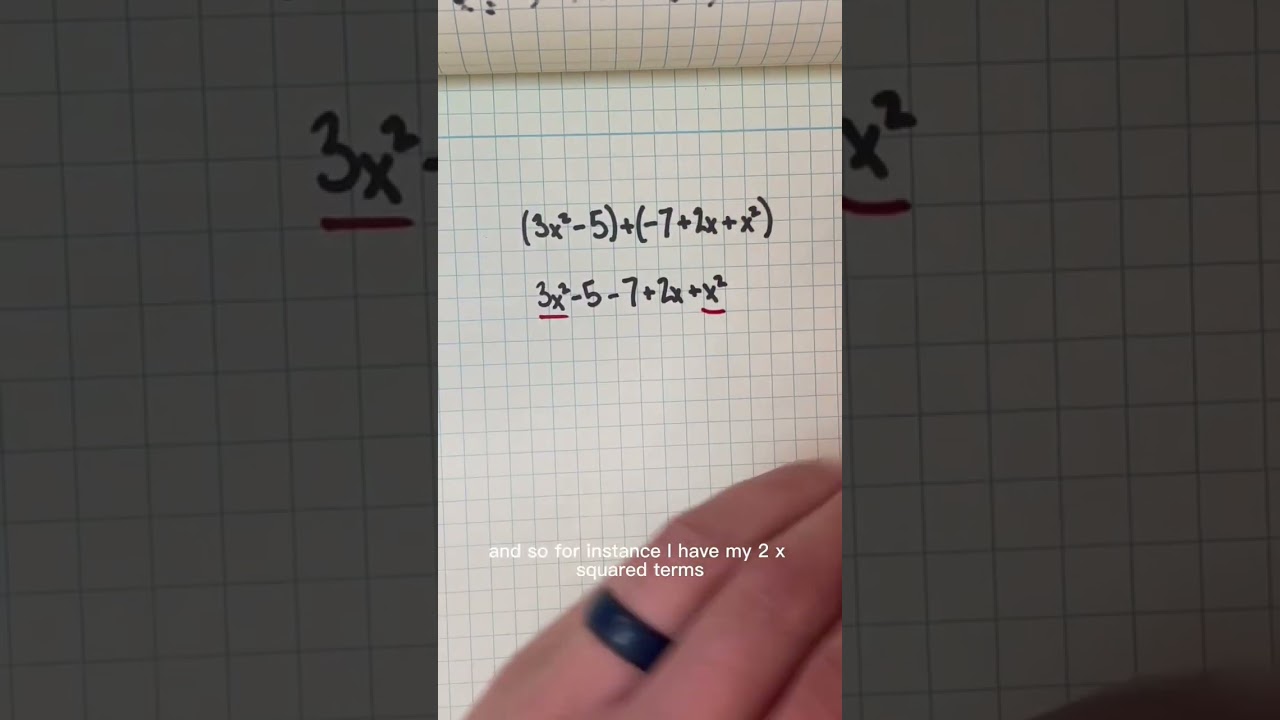 (3x²-5)+(-7+2x+x²)
3x²-5-7+2x+x²
and so for instance I have my 2 x
squared terms